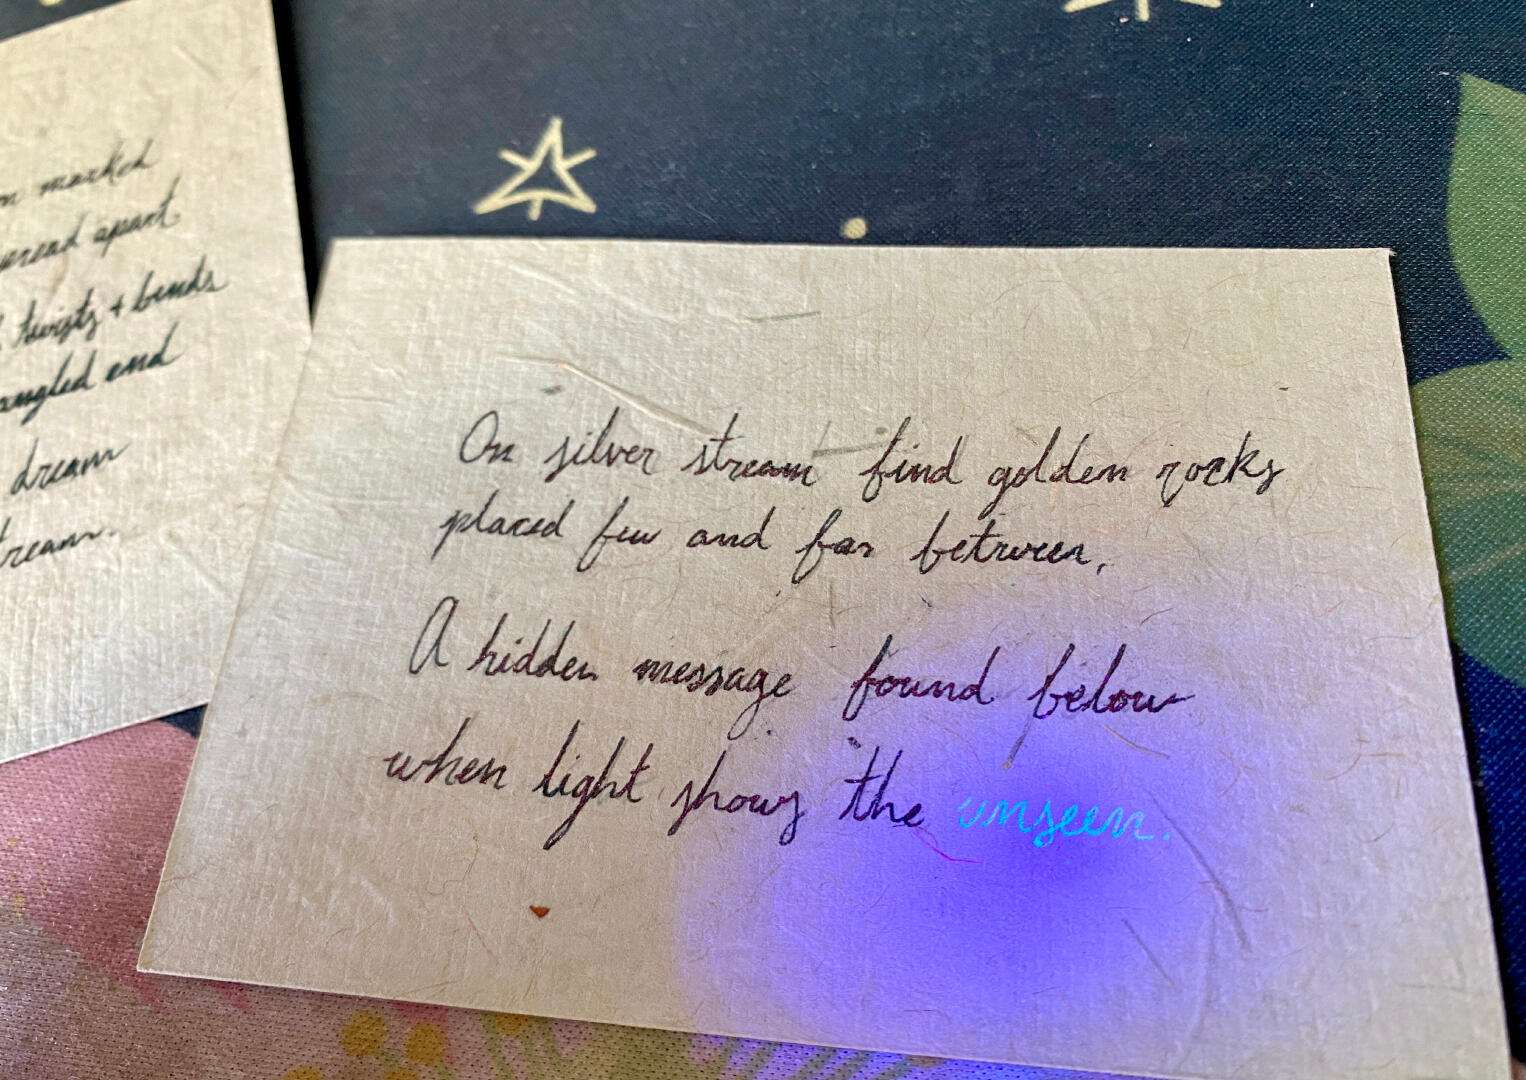 marked
apart
twists + bends
end
dream
On silver stream find golden rocks
placed few and far between,
A hidden message found below
when light shows the unseen.